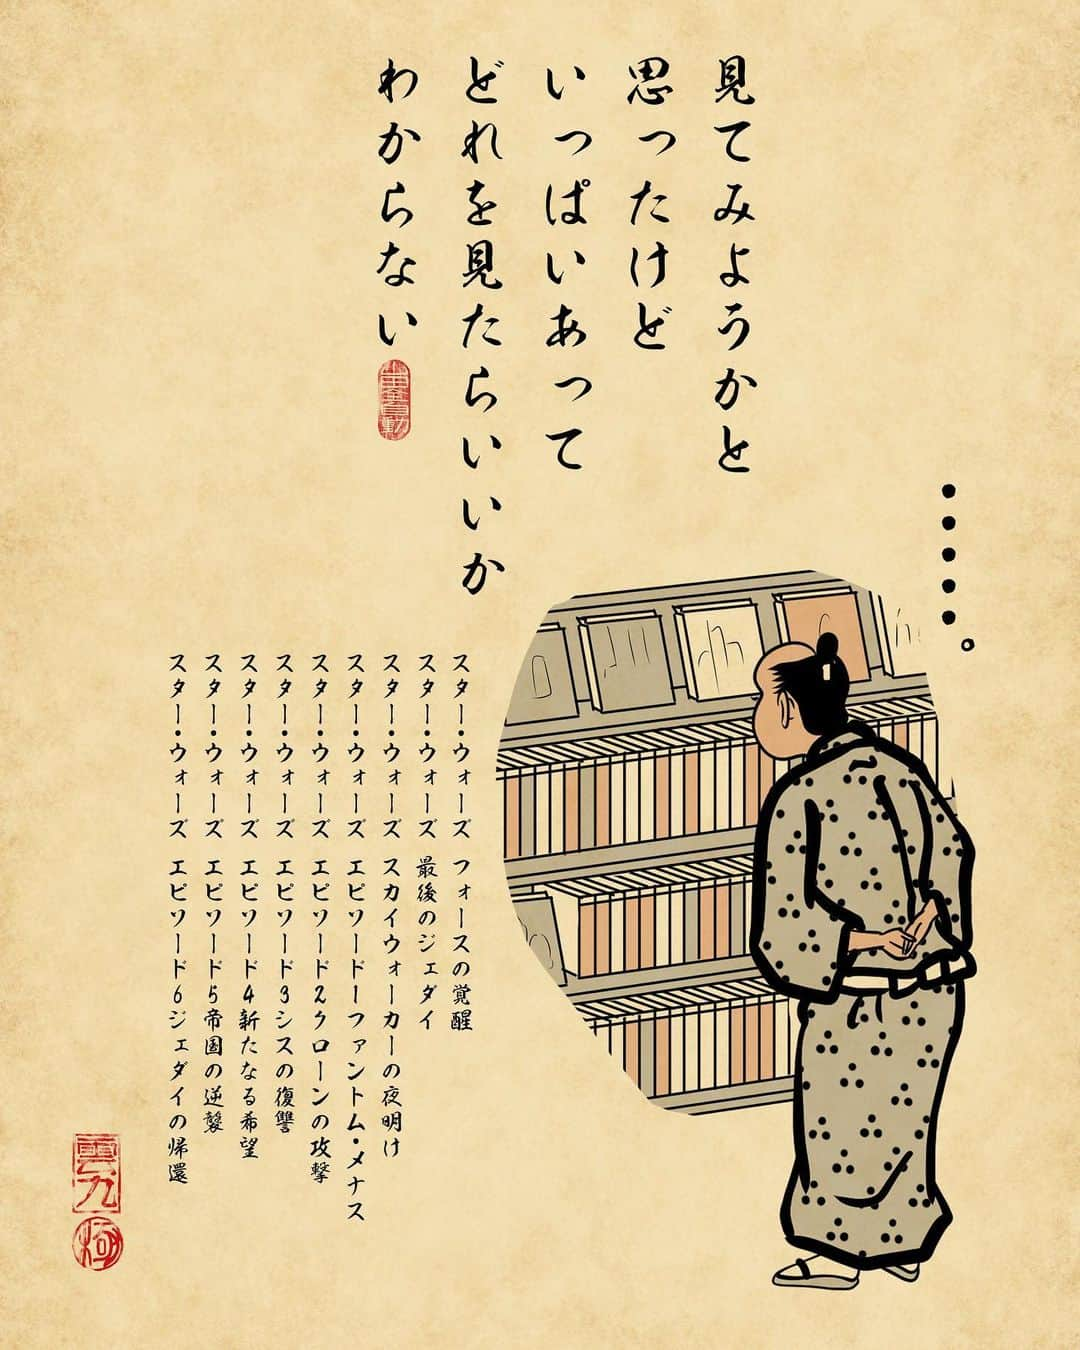 見てみようかと
思ったけど
いっぱいあって
どれを見たらいいか
わからない
・・・・・。
スター・ウォーズ フォースの覚醒
スター・ウォーズ 最後のジェダイ
スター・ウォーズ スカイウォーカーの夜明け
スター・ウォーズ エピソード1ファントム・メナス
スター・ウォーズ エピソード2クローンの攻撃
スター・ウォーズ エピソード3シスの復讐
スター・ウォーズ エピソード4新たなる希望
スター・ウォーズ エピソード5帝国の逆襲
スター・ウォーズ エピソード6ジェダイの帰還